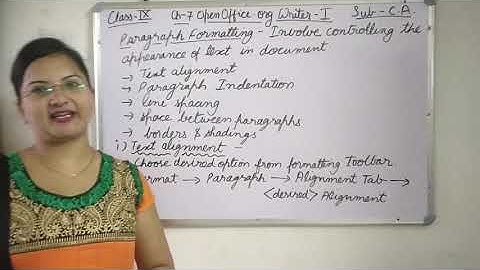 Class-IX Ch-7 OpenOffice org Writer-I Sub-C.A.
Paragraph Formatting - Involve controlling the
appearance of text in document
→ Text alignment
→ Paragraph Indentation
→ line spacing
→ space between paragraphs
→ borders & shadings
i) Text alignment -
Choose desired option from formatting Toolbar
ormat → Paragraph → Alignment Tab →
<desired> Alignment